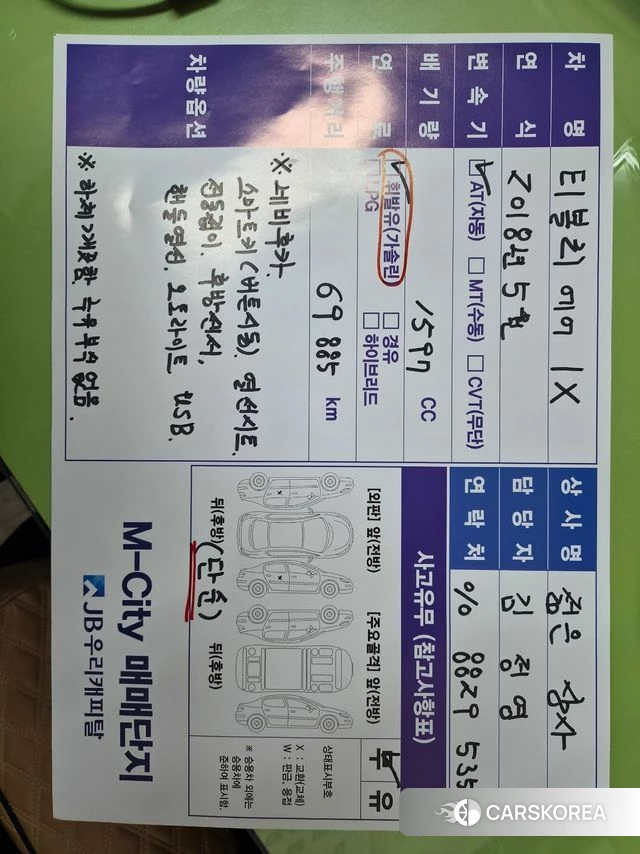 차 명 티볼리 에어 IX
연 식 2018년 5월
변 속 기 AT(자동) MT(수동) CVT(무단)
배 기 량 1597 CC
연 료 휘발유(가솔린) 경유
LPG 하이브리드
주 행 거 리 69885 km
차량옵션 ※ 네비후카.
스마트키(버튼시동). 열선시트.
전동접이. 후방센서.
핸들열선. 오토라이트 USB.
※ 하체 깨끗함. 누유 부식 없음.
상 사 명 젊은 상사
담 당 자 김 정 영
연 락 처 % 8829 535
사고유무 (참고사항표)
무 유
[외판] 앞(전방)
[주요골격] 앞(전방)
뒤(후방) (단순)
뒤(후방)
상태표시부호
X : 교환(교체)
W : 판금, 용접
※ 승용차 외에는
승용차에
준하여 표시함.
M-City 매매단지
JB우리캐피탈
CARSKOREA